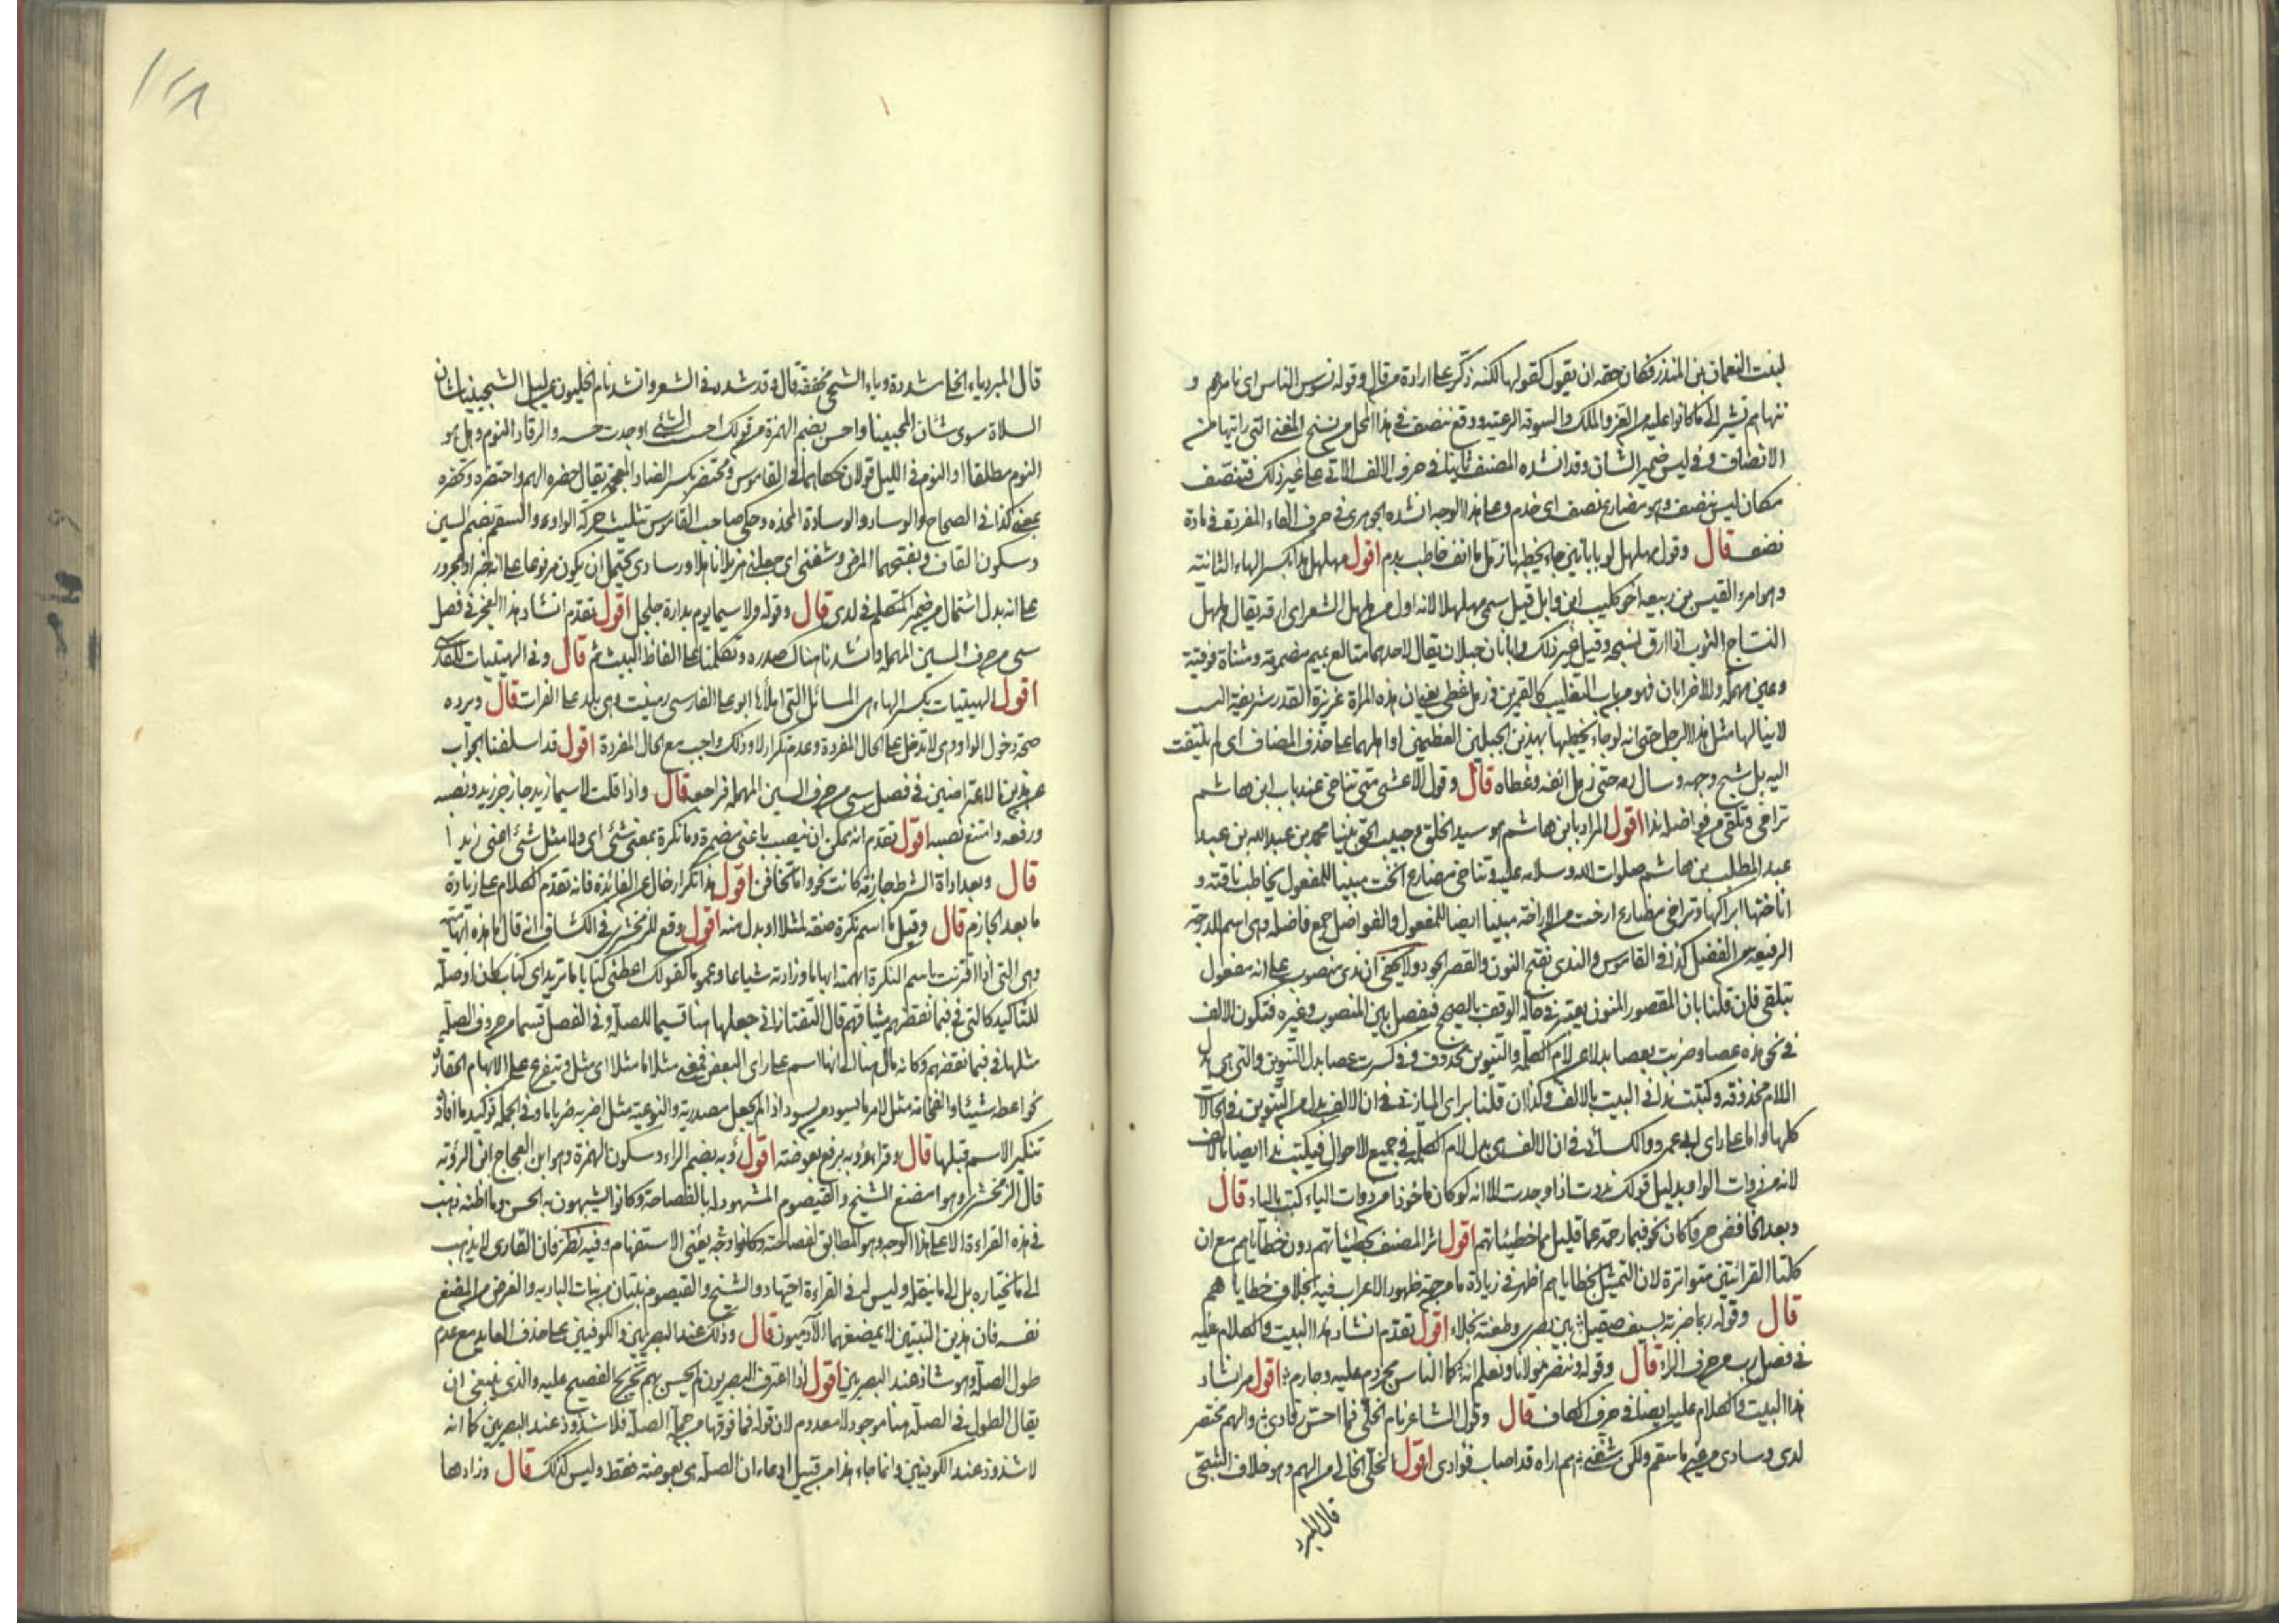 لبنت النعمان بن المنذر فكان حقه ان يقول كقولها لكنه ذكر على ارادة من قال وقوله نسوس الناس اى نامرهم و
ننهاهم تشير الى ما كانوا عليه من العز والملك والسوقة الرعية ووقع ننصف فى هذا المحل من نسخ المغنى التى رايتها من
الانصاف وفى ليس ضمير الشان وقد انشده المصنف ثانيا فى حرف الالف الاتى على غير ذلك فنتنصف
مكان ليس ننصف وهو مضارع تنصف اى خدم وعلى هذا الوجه انشده الجوهرى فى حرف الفاء المفردة فى مادة
نصف قال وقول مهلهل لو بابانين جاء يخطبها زمل ما انف خاطب بدم اقول مهلهل هذا بكسر الهاء الثانية
وهو امرء القيس بن ربيعة اخو كليب ابن وايل قيل سمى مهلهلا لانه اول من هلهل الشعر اى ارقه يقال هلهل
النساج الثوب اذا ارق نسجه وقيل غير ذلك وابانان جبلان يقال لاحدهما متالع بميم مضمومة ومثناة فوقية
وعين مهملة وللاخر ابان فهو من باب التغليب كالقمرين زمل غطى يعنى ان هذه المراة عزيزة القدر شريفة النسب
لا ينالها مثل هذا الرجل حتى انه لو جاء يخطبها بهذين الجبلين العظيمين او اهلهما على حذف المضاف اى لم يلتفت
اليه بل شج وجهه وسال دمه حتى زمل انفه وغطاه قال وقول الاعشى متى تناخى عند باب ابن هاشم
تراخى وتلقى من فواضله ندا اقول المراد بابن هاشم هو سيد الخلق وحبيب الحق نبينا محمد بن عبد الله بن عبد
عبد المطلب بن هاشم صلوات الله وسلامه عليه وتناخى مضارع انخت مبنيا للمفعول يخاطب ناقته و
اناختها ابراكها وتراخى مضارع ارخت من الاراخة مبنيا ايضا للمفعول والفواضل جمع فاضلة وهى اسم الدرجة
الرفيعة من الفضل كذا فى القاموس والندى بفتح النون والقصر الجود ولا يخفى ان ندى منصوب على انه مفعول
بتلقى فان قلنا بان المقصور المنون يعتبر فى حالة الوقف بالصحيح فيفصل بين المنصوب وغيره فتكون الالف
فى نحو هذه عصا وضربت بعصا بدلا عن لام الكلمة والتنوين محذوف وفى كسرت عصا بدل التنوين والتى هى بدل
اللام محذوفة وكتبت ندا فى البيت بالالف وكذا ان قلنا براى المازنى فى ان الالف بدل من التنوين فى الحالات
كلها واما على راى ابى عمرو والكسائى فى ان الالف هى بدل لام الكلمة فى جميع الاحوال فيكتب ندا ايضا بالالف
لانه من ذوات الواو بدليل قولك ندوت اذا وجدت الا انه لو كان ماخوذا من ذوات الياء كتب بالياء قال
وبعد الخافض حرفا كان نحو فبما رحمة عما قليل مما خطيئاتهم اقول اثر المصنف خطيئاتهم دون خطاياهم مع ان
كلتا القرائتين متواترة لان التمثيل بخطاياهم اظهر فى زيادة ما من جهة ظهور الاعراب فيه بخلاف خطاياهم
قال وقوله ربما ضربة بسيف صقيل بين بصرى وطعنة نجلاء اقول تقدم انشاد هذا البيت والكلام عليه
فى فصل رب من حرف الراء قال وقوله وننصر مولانا ونعلم انه كما الناس مجروم عليه وجارم اقول مر انشاد
هذا البيت والكلام عليه ايضا فى حرف الكاف قال وقول الشاعر نام الخلى فما احس رقادى والهم محتضر
لدى وسادى من غير ما سقم ولكن شفنى هم اراه قد اصاب فؤادى اقول الخلى الخالى من الهم وهو خلاف الشجى
قال المبرد
١٢٨
قال المبرد ياء الخلى مشددة وياء الشجى مخففة قال وقد شدد فى الشعر وانشد نام الخليون عن ليل الشجيينا شان
السلاة سوى شان المحبينا واحس بضم الهمزة من قولك احس الشئ اوجدت حسه والرقاد النوم وهل هو
النوم مطلقا او النوم فى الليل قولان حكاهما فى القاموس ومحتضر بكسر الضاد المعجمة يقال حضره الهم واحتضره وتحضره
بمعنى كذا فى الصحاح والوساد والوسادة المخدة وحكى صاحب القاموس تثليث حركة الواو والسقم بضم السين
وسكون القاف وبفتحهما المرض وشفنى اى جعلنى هزيلا ناحلا ورسادى يحتمل ان يكون مرفوعا على انه خبر او مجرور
على انه بدل اشتمال من ضمير المتكلم فى لدى قال وقوله ولا سيما يوم بدارة جلجل اقول تقدم انشاد هذا العجز فى فصل
سى من حرف السين المهملة وانشدنا هناك صدره وتكلمنا على الفاظ البيت ثم قال وفى الهيتيات للفارسى
اقول الهيتيات بكسر الهاء هى المسائل التى املأها ابو على الفارسى بهيت وهى بلد على الفرات قال ويرده
صحة دخول الواو وهى لا تدخل على الحال المفردة وعدم تكرار لا وذلك واجب مع الحال المفردة اقول قد اسلفنا الجواب
عن هذين الاعتراضين فى فصل سى من حرف السين المهملة فراجعه قال واذا قلت لا سيما زيد جاز جر زيد ونصبه
ورفعه وامتنع نصبه اقول تقدم انه يمكن ان ينصب باعنى مضمرة وما نكرة بمعنى شئ اى ولا مثل شئ اعنى زيدا
قال وبعد اداة الشرط جازمة كانت نحو واما تخافن اقول هذا تكرار خال عن الفائدة فانه تقدم الكلام على زيادة
ما بعد الجازم قال وقيل ما اسم نكرة صفة لمثلا او بدل منه اقول وقع للزمخشرى فى الكشاف انه قال ما هذه ابهامية
وهى التى اذا اقترنت باسم النكرة ابهمته ابهاما وزادته شياعا وعموما كقولك اعطنى كتابا ما تريد اى كتاب كان او صلة
للتاكيد كالتى فى فبما نقضهم ميثاقهم قال التفتازانى جعلها هنا قسيما للصلة وفى المفصل قسما من حروف الصلة
مثلها فى فبما نقضهم وكانه مال هنا الى انها اسم على راى البعض فمعنى مثلا ما مثلا اى مثل ويتفرع على الابهام الحقارة
نحو اعطه شيئا ما والفخامة مثل لامر ما يسود من يسود اذا لم يجعل مصدرية والنوعية مثل اضربه ضربا ما وفى الجملة توكيد ما افاده
تنكير الاسم قبلها قال وقراءة رؤبة برفع بعوضة اقول رؤبة بضم الراء وسكون الهمزة وهو ابن العجاج
قال الزمخشرى وهو امضغ الشيح والقيصوم المشهود له بالفصاحة وكانوا يشبهون به الحسن وما اظنه ذهب
فى هذه القراءة الا على هذا الوجه وهو المطابق لفصاحته وكانه وجه يعنى الاستفهام وفيه نظر فان القارى لا يذهب
الى ما يختاره بل الى ما ينقله وليس له فى القراءة اجتهاد والشيح والقيصوم نبتان من نبات البادية والغرض من المضغ
نفسه فان هذين النبتين لا يمضغهما الا الآدميون قال وذلك عند البصريين والكوفيين على حذف العايد مع عدم
طول الصلة وهو شاذ عند البصريين اقول اذا اعترف البصريون لم يحسن بهم تخريج الفصيح عليه والذى ينبغى ان
يقال الطول فى الصلة هنا موجود لا معدوم لان قوله فما فوقها من جملة الصلة فلا شذوذ عند البصريين كما انه
لا شذوذ عند الكوفيين وانما جاء هذا من قبيل ادعاء ان الصلة هى بعوضة فقط وليس كذلك قال وزادها